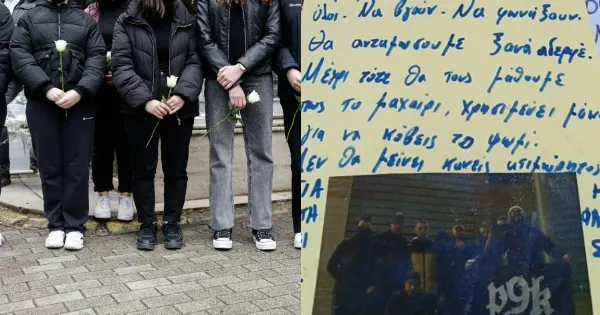 όλοι. Να βγούν. Να φωνάξουν.
Θα ανταμώσουμε ξανά αδερφέ.
Μέχρι τότε θα τους μάθουμε
πως το μαχαίρι, χρησιμεύει μόν
για να κόβεις το ψωμί.
Δεν θα μείνει κανείς ατιμώρητος
p9k